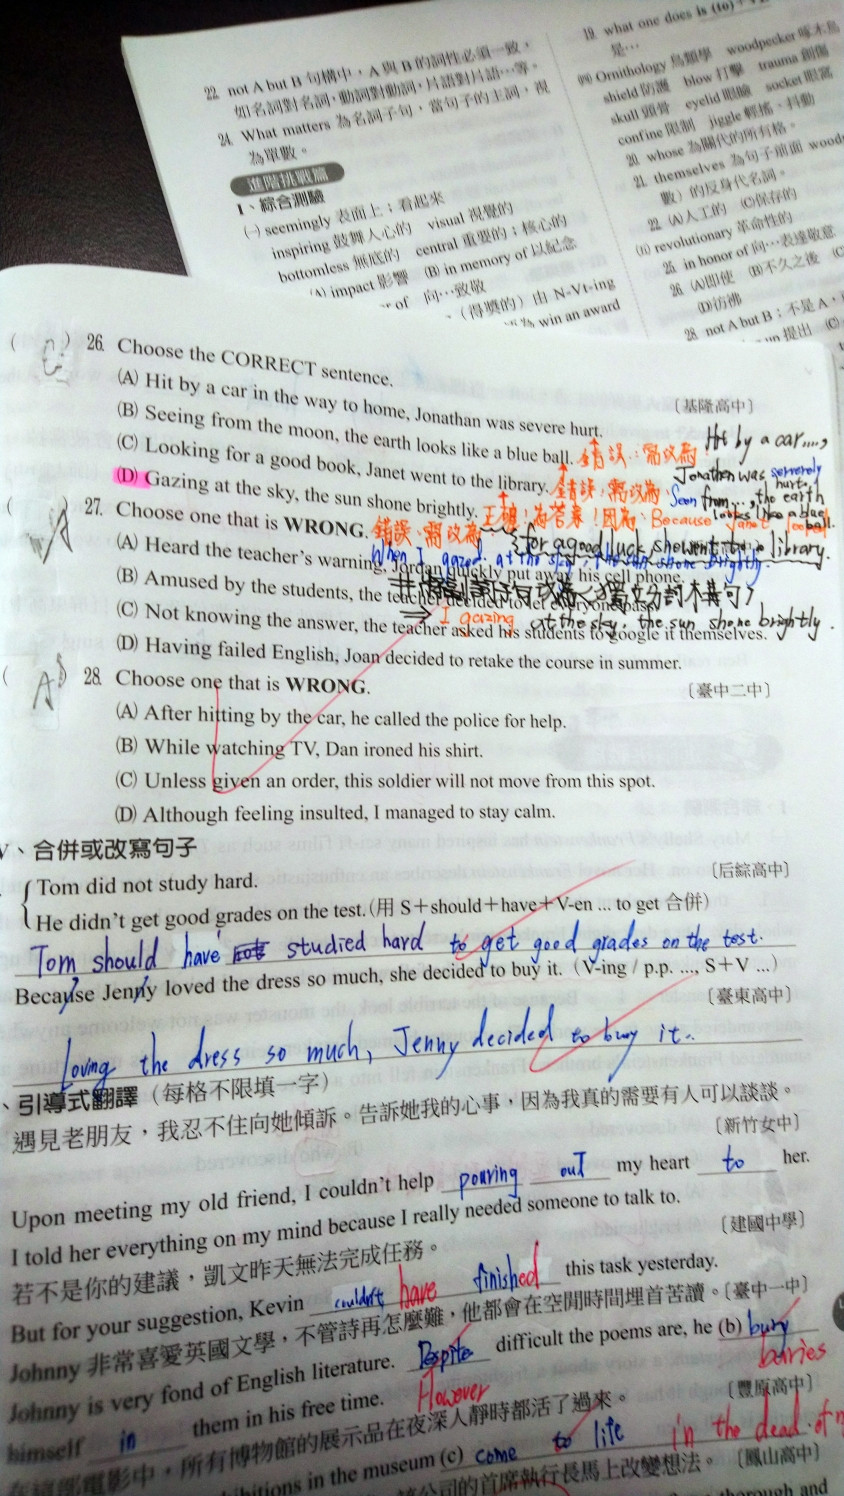 22. not A but B 句構中，A 與 B 的詞性必須一致，
如名詞對名詞，動詞對動詞，片語對片語…等。
24. What matters 為名詞子句，當句子的主詞，視
為單數。
進階挑戰篇
I、綜合測驗
(一) seemingly 表面上；看起來
inspiring 鼓舞人心的 visual 視覺的
bottomless 無底的 central 重要的；核心的
(A) impact 影響 (B) in memory of 以紀念
of 向…致敬
（得獎的）由 N-Vt-ing
為 win an award
19. what one does is (to)
是…
(四) Ornithology 鳥類學 woodpecker 啄木鳥
shield 防護 blow 打擊 trauma 創傷
skull 頭骨 eyelid 眼瞼 socket 眼窩
confine 限制 jiggle 輕搖、抖動
20. whose 為關代的所有格。
21. themselves 為句子前面
數）的反身代名詞。
22. (A)人工的 (C)保存的
(五) revolutionary 革命性的
25. in honor of 向…表達敬意
26. (A)即使 (B)不久之後
(D)彷彿
28. not A but B：不是A，
提出
( C ) 26. Choose the CORRECT sentence.
〔基隆高中〕
(A) Hit by a car in the way to home, Jonathan was severe hurt.
(B) Seeing from the moon, the earth looks like a blue ball.
(C) Looking for a good book, Janet went to the library.
(D) Gazing at the sky, the sun shone brightly.
Hit by a car....,
錯誤：需改為：
Jonathan was serverely hurt.
錯誤，需改為：Seen from..., the earth
looks like a blue ball.
正確！為答案！因為：Because Janet looked
for a good luck, she went to a library.
錯誤，需改為
When I gazed at the sky, the sun shone brightly.
⇒ I gazing at the sky, the sun shone brightly.
( A ) 27. Choose one that is WRONG.
(A) Heard the teacher's warning, Jordan quickly put away his cell phone.
(B) Amused by the students, the teacher decided to let everyone pass.
(C) Not knowing the answer, the teacher asked his students to google it themselves.
(D) Having failed English, Joan decided to retake the course in summer.
( A ) 28. Choose one that is WRONG.
〔臺中二中〕
(A) After hitting by the car, he called the police for help.
(B) While watching TV, Dan ironed his shirt.
(C) Unless given an order, this soldier will not move from this spot.
(D) Although feeling insulted, I managed to stay calm.
V、合併或改寫句子
〔后綜高中〕
Tom did not study hard.
He didn't get good grades on the test. (用 S＋should＋have＋V-en ... to get 合併)
Tom should have studied hard to get good grades on the test.
Because Jenny loved the dress so much, she decided to buy it.（V-ing / p.p. ..., S＋V ...）
〔臺東高中〕
Loving the dress so much, Jenny decided to buy it.
、引導式翻譯（每格不限填一字）
遇見老朋友，我忍不住向她傾訴。告訴她我的心事，因為我真的需要有人可以談談。
〔新竹女中〕
Upon meeting my old friend, I couldn't help pouring out my heart to her.
I told her everything on my mind because I really needed someone to talk to.
若不是你的建議，凱文昨天無法完成任務。
〔建國中學〕
But for your suggestion, Kevin couldn't have finished this task yesterday.
Johnny 非常喜愛英國文學，不管詩再怎麼難，他都會在空閒時間埋首苦讀。〔臺中一中〕
Johnny is very fond of English literature. Despite difficult the poems are, he (b) bury
However
buries
himself in them in his free time.
〔豐原高中〕
在這部電影中，所有博物館的展示品在夜深人靜時都活了過來。
hibitions in the museum (c) come to life in the dead of
該公司的首席執行長馬上改變想法。〔鳳山高中〕
thorough and